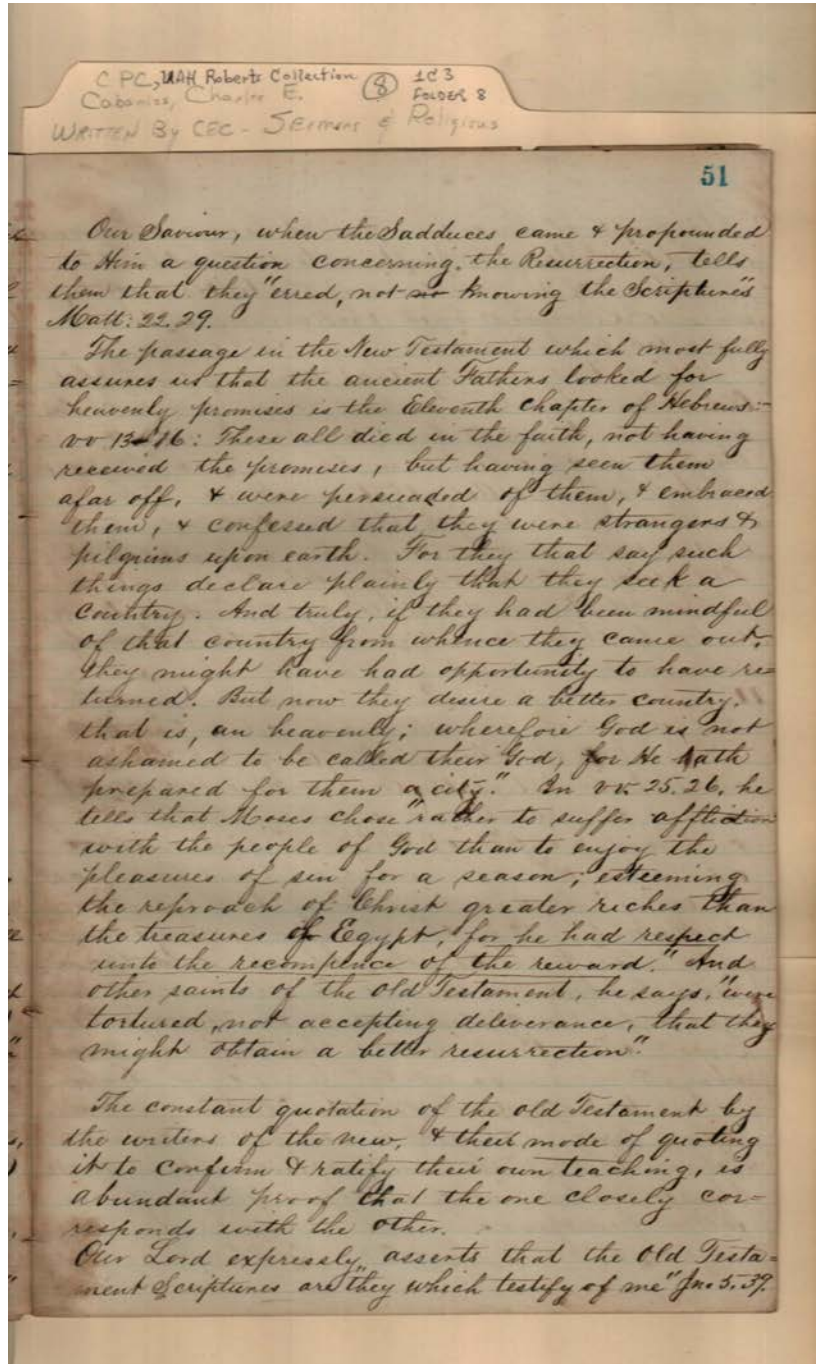 CPC, UAH Roberts Collection (8) 1C3
Cabaniss, Charles E. FOLDER 8
WRITTEN By CEC - SERMONS & Religious
51
Our Saviour, when the Sadduces came & propounded
to Him a question concerning the Resurrection, tells
them that they "erred, not no knowing the Scriptures"
Matt: 22.29.
The passage in the New Testament which most fully
assures us that the ancient Fathers looked for
heavenly promises is the Eleventh chapter of Hebrews:-
vv 13-16: These all died in the faith, not having
received the promises, but having seen them
afar off, & were persuaded of them, & embraced
them, & confessed that they were strangers &
pilgrims upon earth. For they that say such
things declare plainly that they seek a
country. And truly, if they had been mindful
of that country from whence they came out,
they might have had opportunity to have re=
turned. But now they desire a better country,
that is, an heavenly; wherefore God is not
ashamed to be called their God, for He hath
prepared for them a city." In vv. 25.26. he
tells that Moses chose "rather to suffer affliction
with the people of God than to enjoy the
pleasures of sin for a season; esteeming
the reproach of Christ greater riches than
the treasures of Egypt, for he had respect
unto the recompence of the reward." And
other saints of the Old Testament, he says, "were
tortured, not accepting deliverance, that they
might obtain a better resurrection".
The constant quotation of the old Testament by
the writers of the new, & their mode of quoting
it to confirm & ratify their own teaching, is
abundant proof that the one closely cor=
responds with the other.
Our Lord expressly asserts that the Old Testa=
ment Scriptures are "they which testify of me" Jno 5.39.